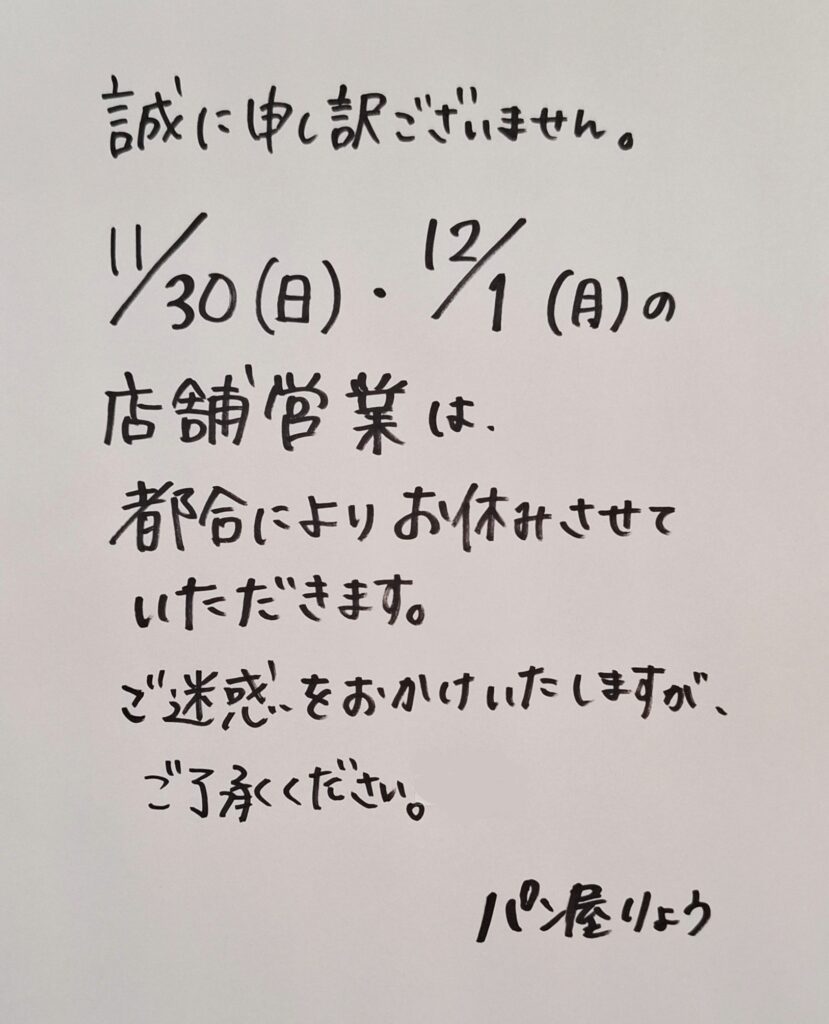 誠に申し訳ございません。
11/30(日)・12/1(月)の
店舗営業は、
都合によりお休みさせて
いただきます。
ご迷惑をおかけいたしますが、
ご了承ください。
パン屋りょう